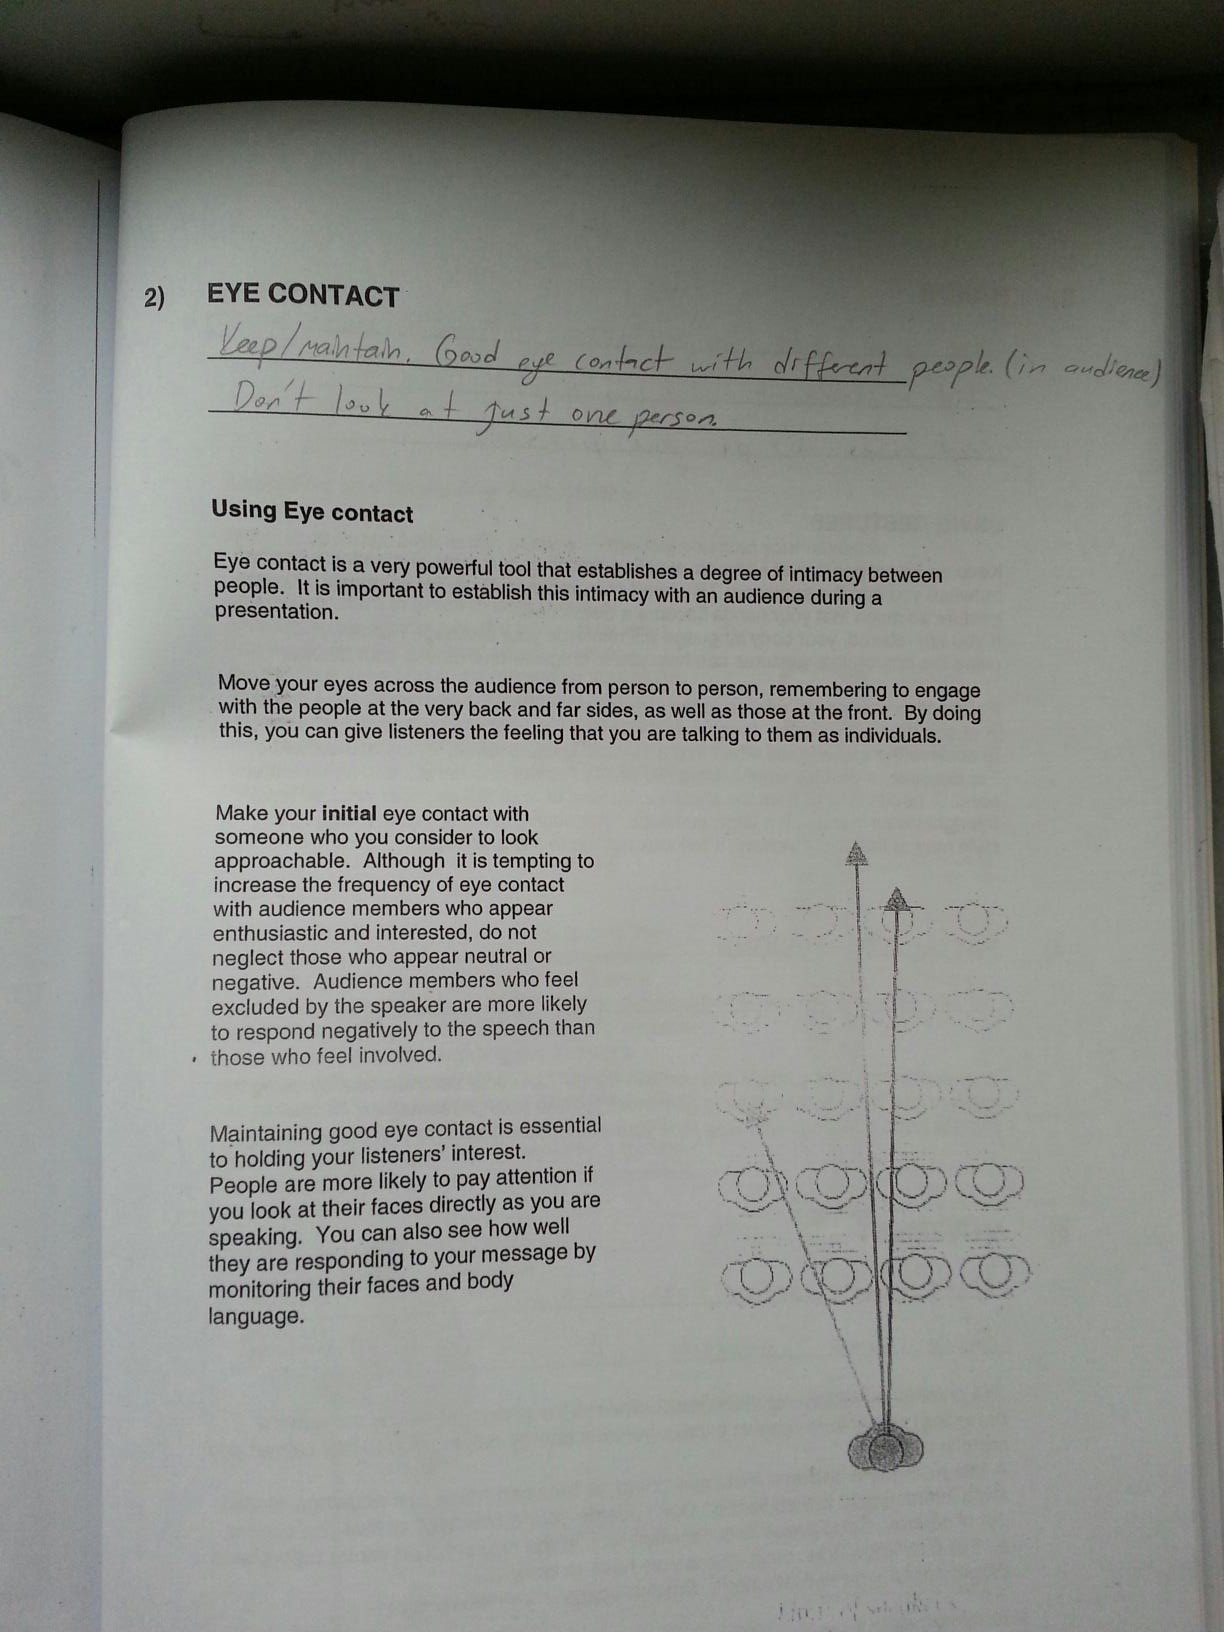 2) EYE CONTACT
Keep/maintain. Good eye contact with different people. (in audience)
Don't look at just one person.
Using Eye contact
Eye contact is a very powerful tool that establishes a degree of intimacy between
people. It is important to establish this intimacy with an audience during a
presentation.
Move your eyes across the audience from person to person, remembering to engage
with the people at the very back and far sides, as well as those at the front. By doing
this, you can give listeners the feeling that you are talking to them as individuals.
Make your initial eye contact with
someone who you consider to look
approachable. Although it is tempting to
increase the frequency of eye contact
with audience members who appear
enthusiastic and interested, do not
neglect those who appear neutral or
negative. Audience members who feel
excluded by the speaker are more likely
to respond negatively to the speech than
those who feel involved.
Maintaining good eye contact is essential
to holding your listeners' interest.
People are more likely to pay attention if
you look at their faces directly as you are
speaking. You can also see how well
they are responding to your message by
monitoring their faces and body
language.